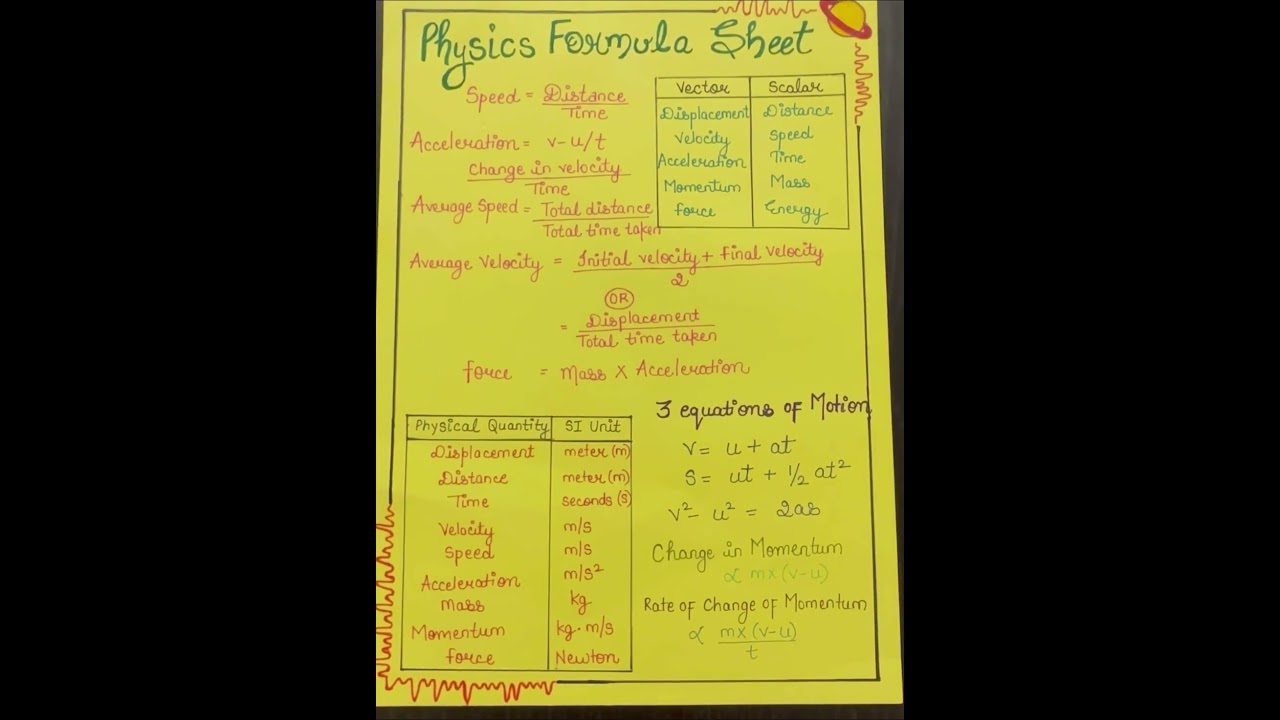 Physics Formula Sheet
Speed = Distance
Time
Acceleration = v-u/t
Change in velocity
Time
Average Speed = Total distance
Total time taken
Vector Scalar
Displacement Distance
Velocity Speed
Acceleration Time
Momentum Mass
force Energy
Average Velocity = Initial velocity + Final Velocity
2
OR
= Displacement
Total time taken
force = Mass X Acceleration
Physical Quantity SI Unit
Displacement meter (m)
Distance meter (m)
Time seconds (s)
Velocity m/s
Speed m/s
Acceleration m/s²
Mass kg
Momentum kg·m/s
force Newton
3 equations of Motion
v = u + at
s = ut + 1/2 at²
v² - u² = 2as
Change in Momentum
∝ mx(v-u)
Rate of Change of Momentum
∝ mx(v-u)
t